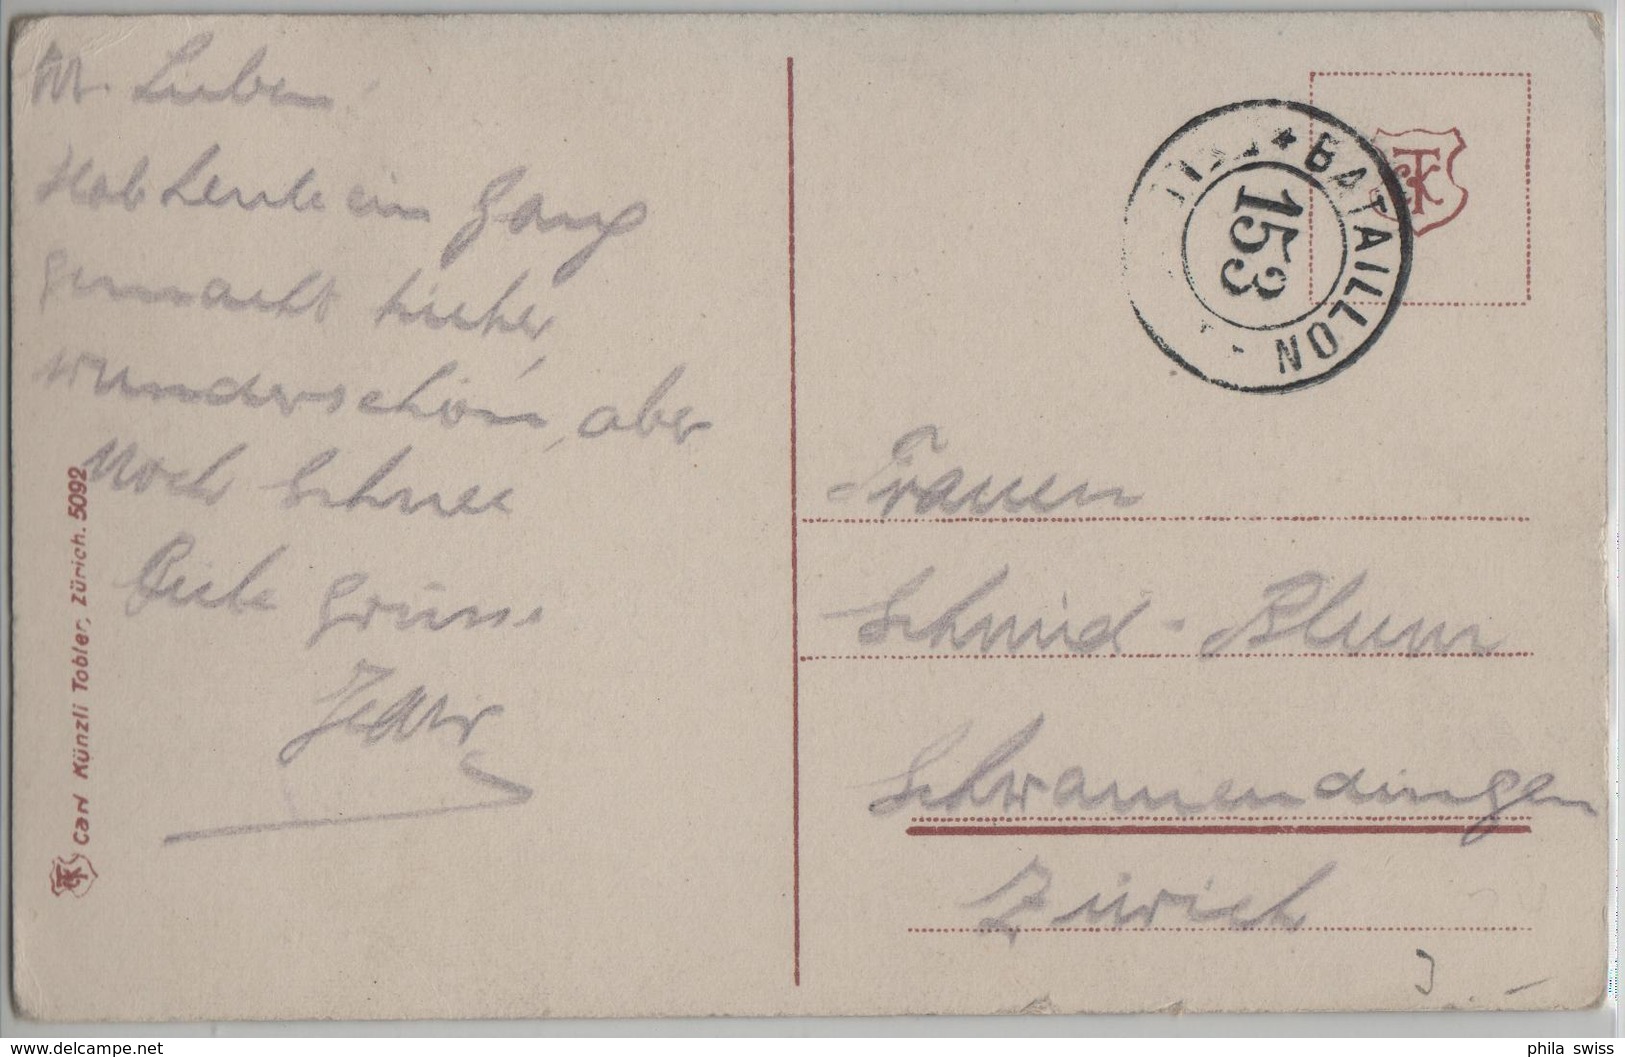 Lieben!
Hab heute ein Gang
gemacht hieher
wunderschön, aber
Noch Schnee
Grüsse
Carl Künzli Tobler, Zürich. 5092
BATAILLON
153
Frauen
Schmid-Blum
Schwamendingen
Zürich
delcampe.net
phila_swiss